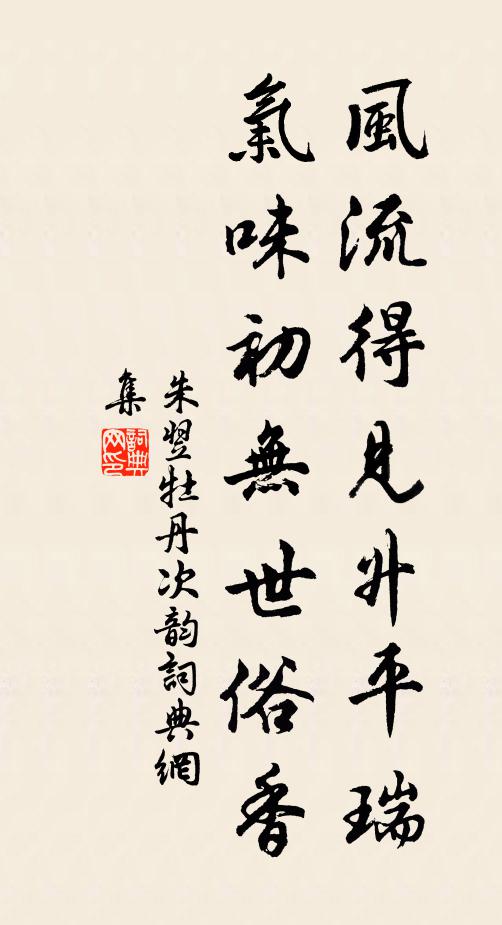 風流得見升平瑞
氣味初無世俗香
朱翌牡丹次韵詞典網
集
詞典
网印